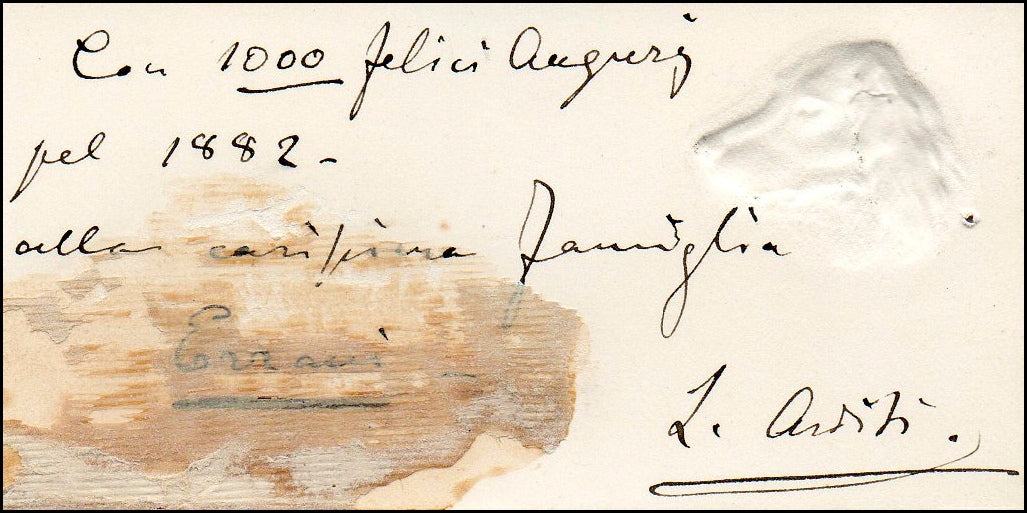 Con 1000 felici Augurj
pel 1882 -
alla carissima famiglia
Errani -
L. Arditi.